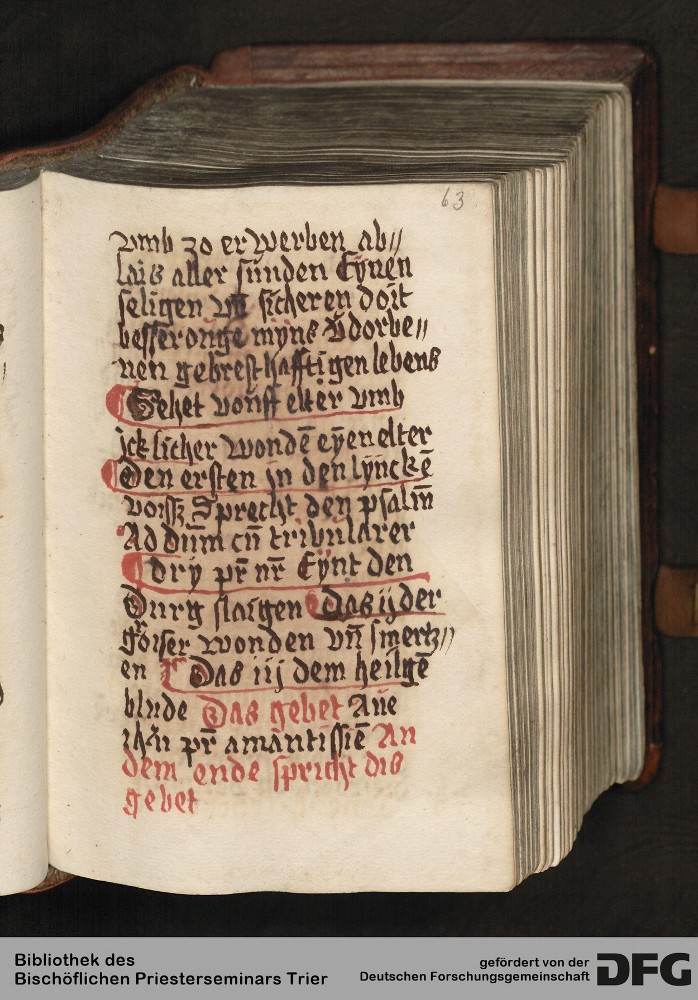 63
vmb zo er werben ab//
lais aller sunden Eynen
seligen vn̄ sicheren doit
besseronge myns v̄dorbe//
nen gebresthafftigen lebens
Gehet vonff elter vmb
ick licher wondē eyen elter
Den ersten jn den lynckē
voisz Sprecht den psalm̄
Ad dūm cū tribularer
dry pr̄ nr̄ Eynt den
Durg slaigen Das ij der
groiser wonden vn̄ smertz//
en Das iij dem heilgē
blude Das gebet Aue
ih̄u pr̄ amantissiē An
dem ende spricht dis
gebet
Bibliothek des
Bischöflichen Priesterseminars Trier
gefördert von der
Deutschen Forschungsgemeinschaft
DFG